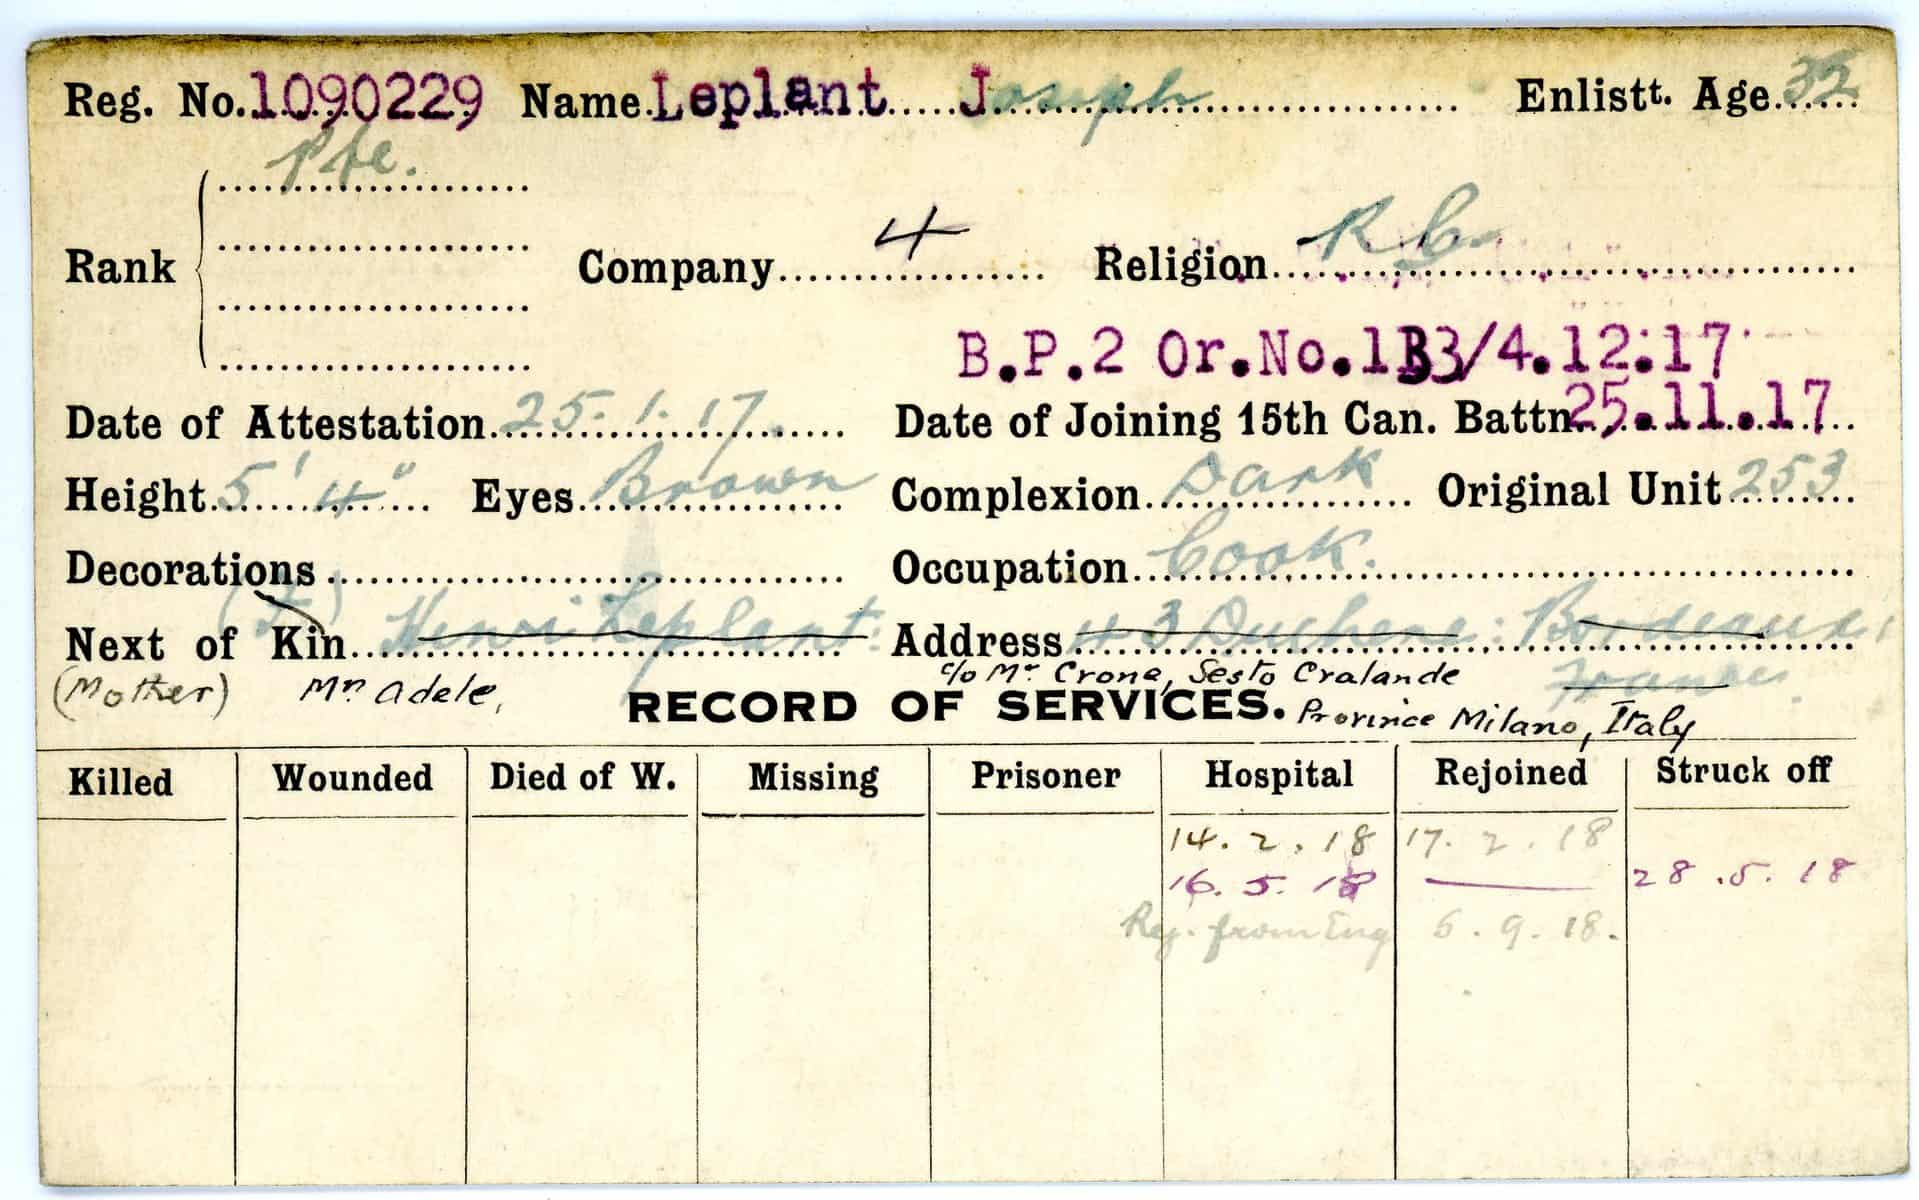 Reg. No. 1090229 Name Leplant Joseph Enlistt. Age 32
Pte.
Rank Company 4 Religion R C
B.P.2 Or.No.133/4.12.17
Date of Attestation 25.1.17. Date of Joining 15th Can. Battn. 25.11.17
Height 5' 4" Eyes Brown Complexion Dark Original Unit 253
Decorations Occupation Cook.
Next of Kin (F) Henri Leplant: Address 43 Duchene: Bordeaux,
France.
(Mother) Mrs Adele, c/o Mr Crone, Sesto Cralande
RECORD OF SERVICES. Province Milano, Italy
Killed Wounded Died of W. Missing Prisoner Hospital Rejoined Struck off
14.2.18 17.2.18
16.5.18 — 28.5.18
Rej. from Eng 5.9.18.